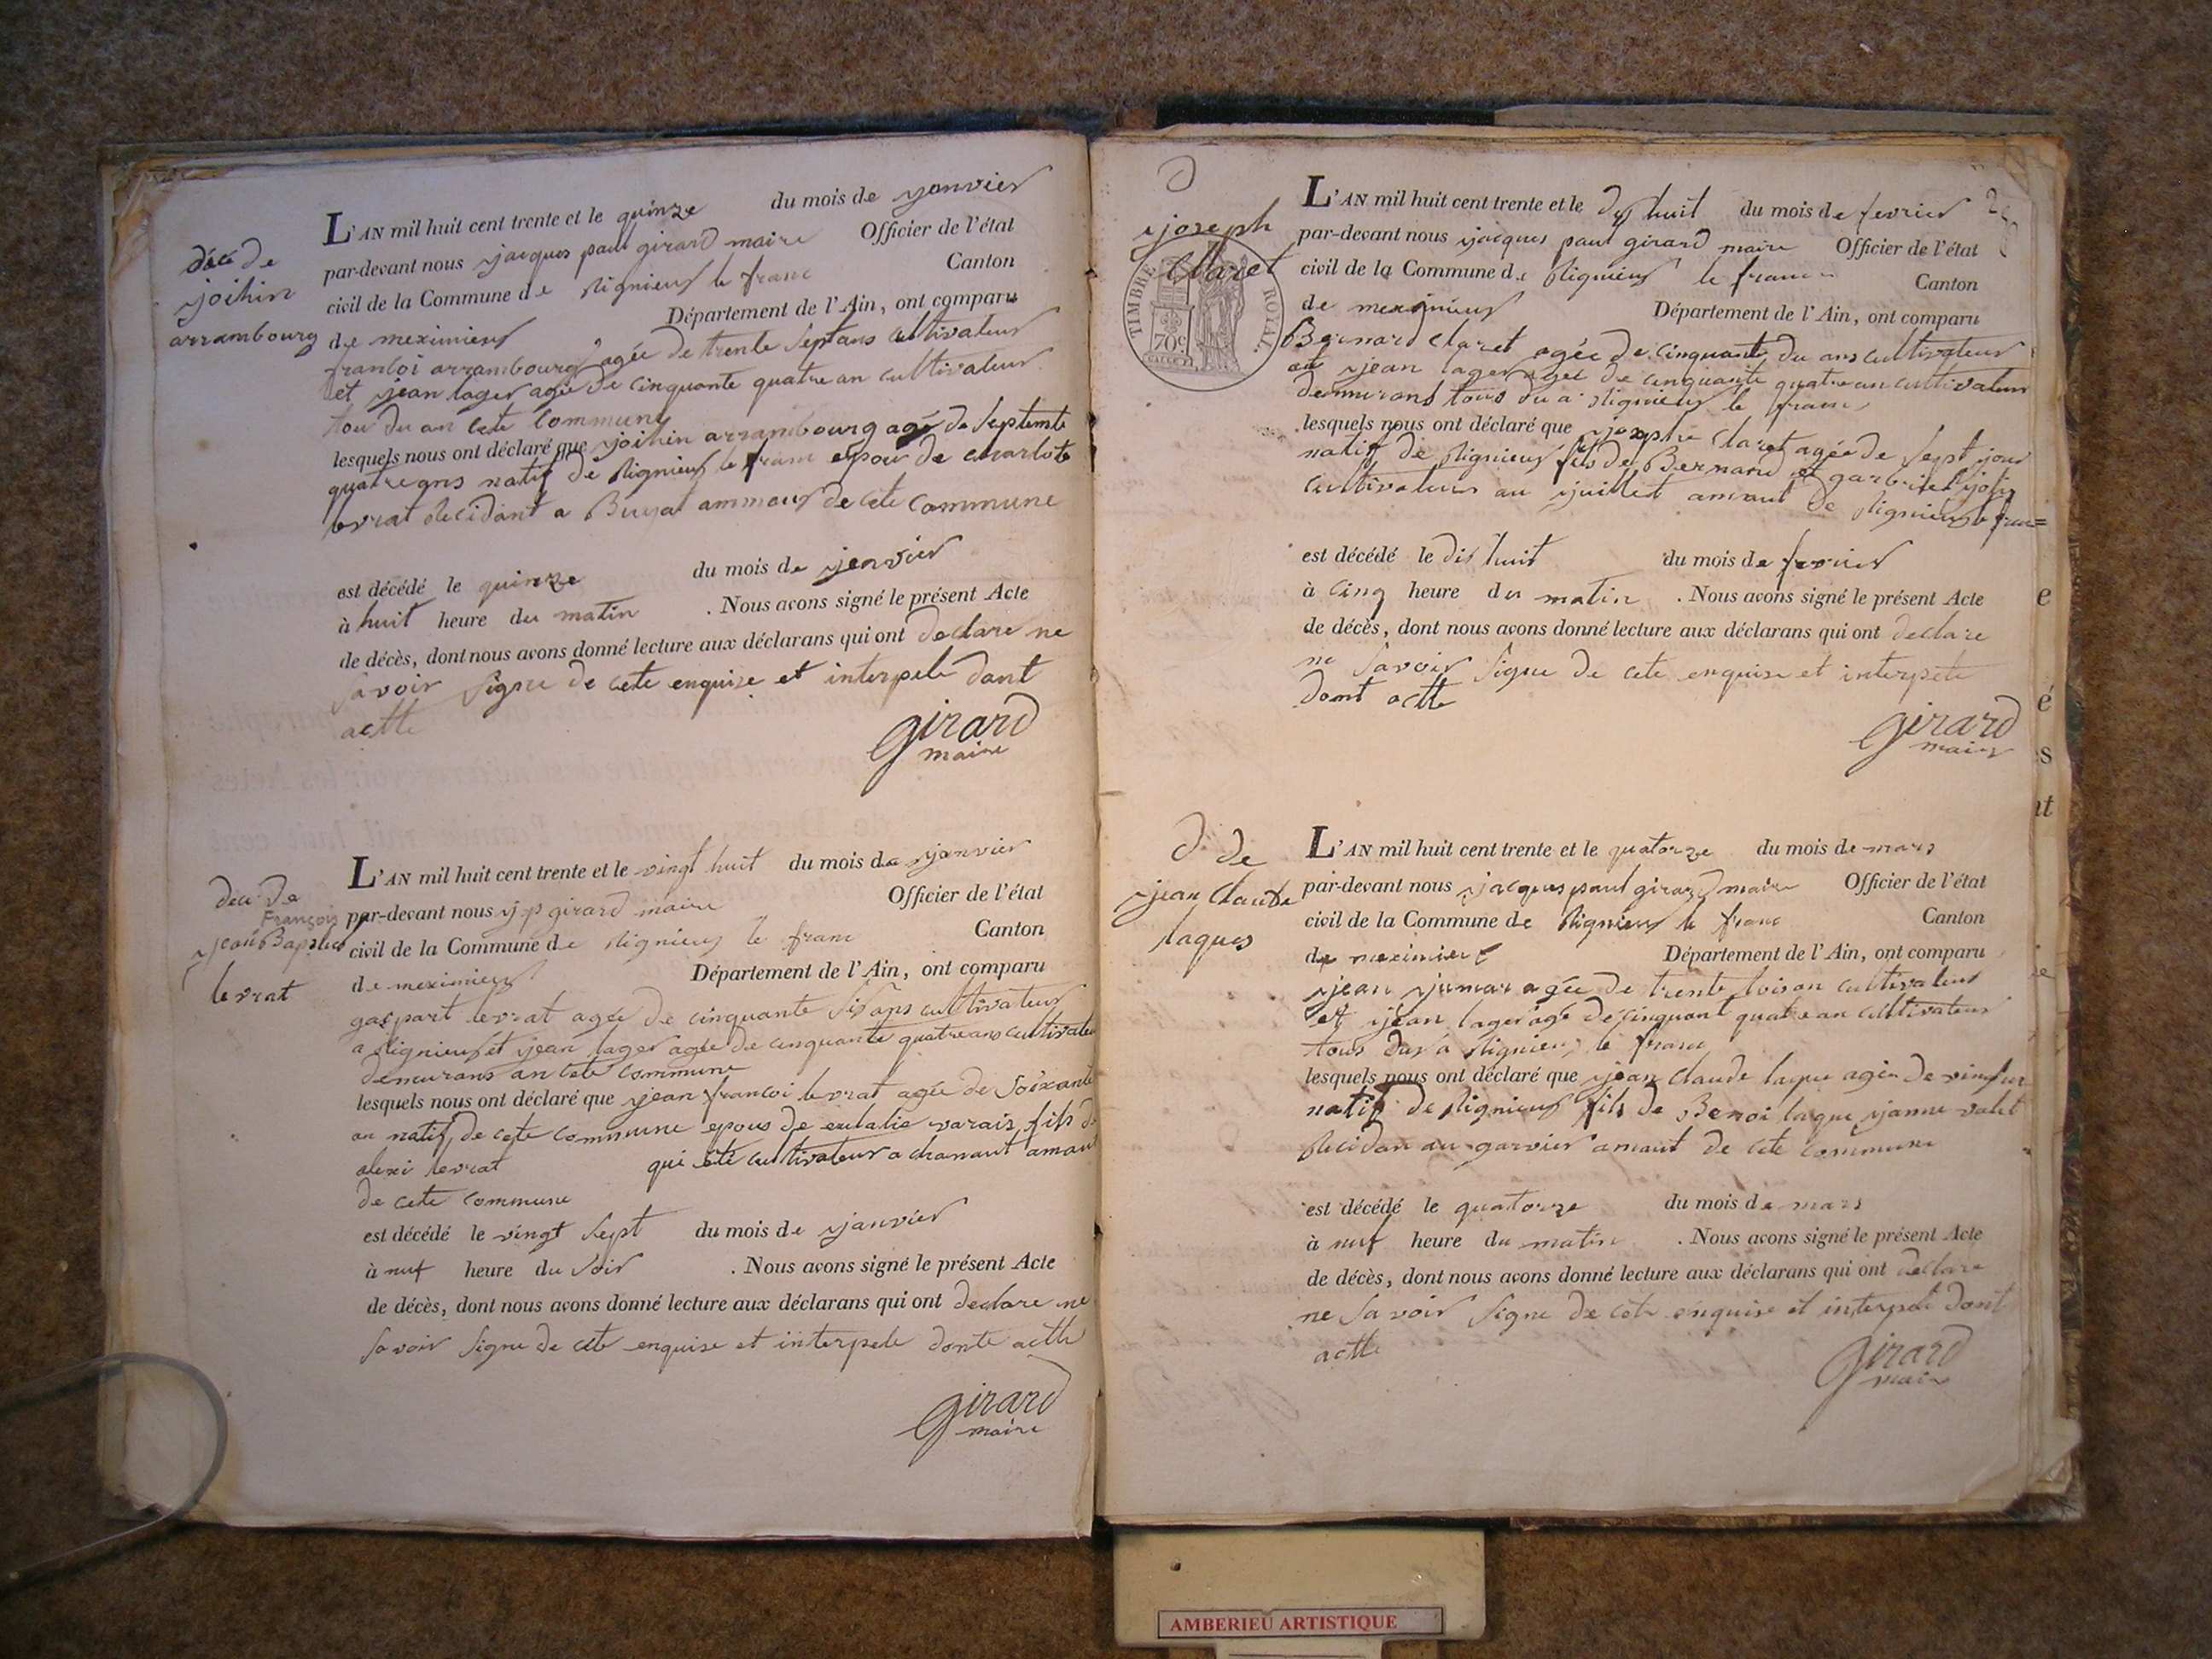 décé de
joihin
arrambourg
L'AN mil huit cent trente et le quinze du mois de janvier
par-devant nous jacques paul girard maire Officier de l'état
civil de la Commune de Rignieux le franc Canton
de meximieux Département de l'Ain, ont comparu
francoi arrambourg agée de trente sept ans cultivateur
et jean lager agée de cinquante quatre an cultivateur
tou du an cete commune
lesquels nous ont déclaré que joihin arrambourg agé de septente
quatre ans natif de Rignieux le franc epou de charlote
levrat decidant a ammour de cete commune
est décédé le quinze du mois de jenvier
à huit heure du matin . Nous avons signé le présent Acte
de décès, dont nous avons donné lecture aux déclarans qui ont declare ne
savoir signe de cete enquise et interpele dont
actte
girard
maire
déce de
François
jean Baptiste
levrat
L'AN mil huit cent trente et le vingt huit du mois de janvier
par-devant nous j p girard maire Officier de l'état
civil de la Commune de Rignieux le franc Canton
de meximieux Département de l'Ain, ont comparu
gaspart levrat agée de cinquante sis ans cultivateur
a Rignieux et jean lager agée de cinquante quatre ans cultivateur
demeurans an cete commune
lesquels nous ont déclaré que jean francoi levrat agée de soixante
an natif de cete commune epous de eulalie varais fils de
alexi levrat qui été cultivateur a chanaut amaut
de cete commune
est décédé le vingt sept du mois de janvier
à nuf heure du soir . Nous avons signé le présent Acte
de décès, dont nous avons donné lecture aux déclarans qui ont declare ne
savoir signe de cete enquise et interpele donte actte
girard
maire
D
joseph
Claret
TIMBRE ROYAL
70c
L'AN mil huit cent trente et le dis huit du mois de fevrier
par-devant nous jacques paul girard maire Officier de l'état
civil de la Commune de Rignieux le franc Canton
de meximieux Département de l'Ain, ont comparu
Bernard claret agée de cinquante du ans cultivateur
et jean lager agée de cinquante quatre an cultivateur
demurant tous du a Rignieux le franc
lesquels nous ont déclaré que josephe claret agée de sept jour
natif de Rignieux fils de Bernard et
cultivateur au juillet amaut de Rignieux le franc
est décédé le dis huit du mois de fevrier
à cinq heure du matin . Nous avons signé le présent Acte
de décès, dont nous avons donné lecture aux déclarans qui ont declare
ne savoir signe de cete enquise et interpele
dont actte
girard
maire
D de
jean claude
laques
L'AN mil huit cent trente et le quatorze du mois de mars
par-devant nous jacques paul girard maire Officier de l'état
civil de la Commune de Rignieux le franc Canton
de meximieux Département de l'Ain, ont comparu
jean agée de trente toisan cultivateur
et jean lager agé de cinquant quatre an cultivateur
tous dus a Rignieux le franc
lesquels nous ont déclaré que jean claude laque agée de
natif de Rignieux fils de Benoi laque janne valet
decidan au garvier amaut de cete commune
est décédé le quatorze du mois de mars
à nuf heure du matin . Nous avons signé le présent Acte
de décès, dont nous avons donné lecture aux déclarans qui ont declare
ne savoir signe de cete enquise et interpele dont
actte
girard
maire
e
é
s
nt
AMBERIEU ARTISTIQUE